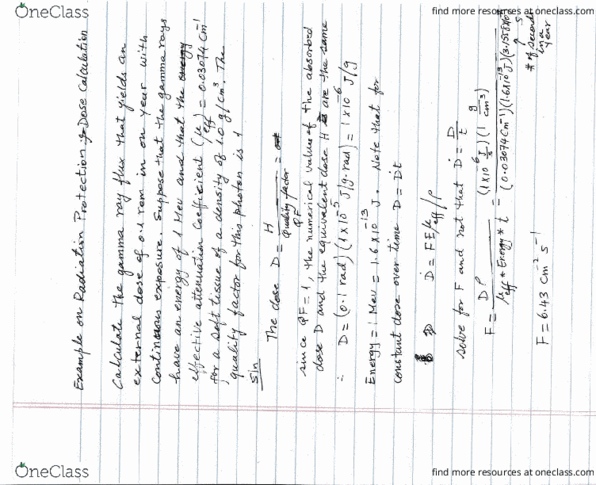 OneClass
find more resources at oneclass.com
Example on Radiation Protection & Dose Calculation
Calculate the gamma ray flux that yields an
external dose of 0.1 rem in on year with
continuous exposure. Suppose that the gamma rays
have an energy of 1 Mev and that the energy
effective attenuation coefficient (μ)eff = 0.03074 cm⁻¹
for a soft tissue of a density of 1.0 g/cm³. The
quality factor for this photon is 1
Sln
The dose D = H / Quality factor =
QF
since QF = 1, the numerical value of the absorbed
dose D and the equivalent dose H are the same
∴ D = (0.1 rad) (1 x 10⁻⁵ J/g.rad) = 1 x 10⁻⁶ J/g
Energy = 1 Mev = 1.6 x 10⁻¹³ J. Note that for
constant dose over time D = Ḋt
D = F E μeff / ρ
solve for F and not that Ḋ = D/t
F = D ρ / μeff * Energy * t = (1x10⁻⁶ J/g) (1 g/cm³) / (0.03074 cm⁻¹)(1.6x10⁻¹³ J)(3.15x10⁷ s)
# of seconds
in a
year
F = 6.43 cm⁻² s⁻¹
OneClass
find more resources at oneclass.com